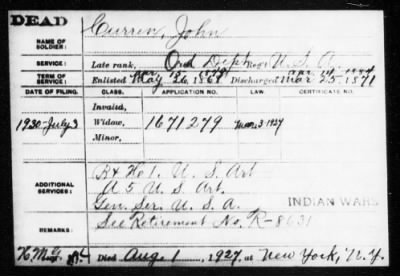 DEAD
NAME OF SOLDIER: Curren, John
SERVICE: Late rank, Ord Dept Reg't U.S.A.
TERM OF SERVICE: Enlisted May 26, 1868 Discharged Mar 25 1871
DATE OF FILING. CLASS. APPLICATION NO. LAW. CERTIFICATE NO.
Invalid,
1930-July 3 Widow, 1671279 Mar 3 1927
Minor,
ADDITIONAL SERVICES: B & Ho 1. U.S. Art
A 5 U.S. Art.
Gen. Ser. U.S.A.
INDIAN WARS
REMARKS: See Retirement No. R-8631
Died Aug 1, 1927, at New York, N.Y.